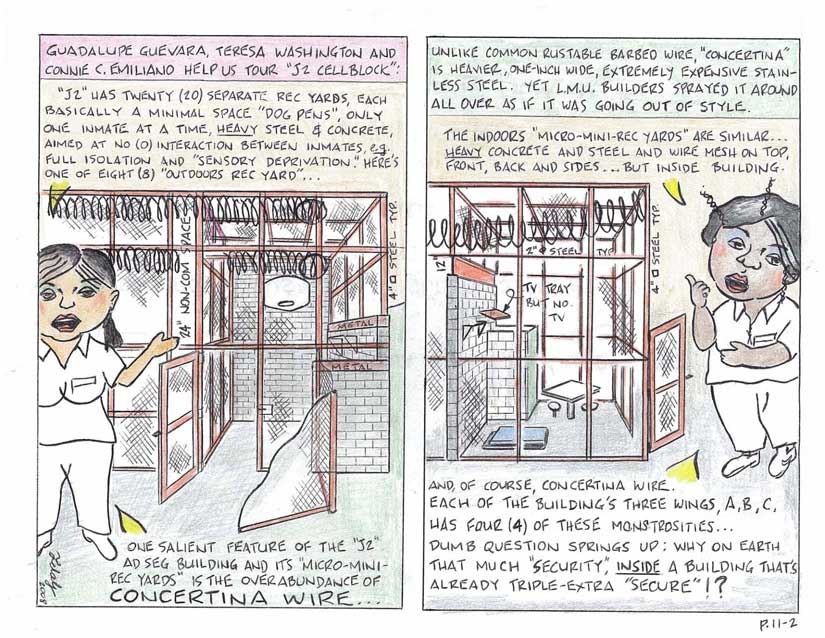 GUADALUPE GUEVARA, TERESA WASHINGTON AND
CONNIE C. EMILIANO HELP US TOUR "J2 CELLBLOCK":
"J2" HAS TWENTY (20) SEPARATE REC YARDS, EACH
BASICALLY A MINIMAL SPACE "DOG PENS", ONLY
ONE INMATE AT A TIME, HEAVY STEEL & CONCRETE,
AIMED AT NO (0) INTERACTION BETWEEN INMATES, e.g.
FULL ISOLATION AND "SENSORY DEPRIVATION." HERE'S
ONE OF EIGHT (8) "OUTDOORS REC YARD"...
24" NON-COM SPACE
4" STEEL TYP.
METAL
METAL
ONE SALIENT FEATURE OF THE "J2"
AD SEG BUILDING AND ITS "MICRO-MINI-
REC YARDS" IS THE OVERABUNDANCE OF
CONCERTINA WIRE...
2008
UNLIKE COMMON RUSTABLE BARBED WIRE, "CONCERTINA"
IS HEAVIER, ONE-INCH WIDE, EXTREMELY EXPENSIVE STAIN-
LESS STEEL. YET L.M.U. BUILDERS SPRAYED IT AROUND
ALL OVER AS IF IT WAS GOING OUT OF STYLE.
THE INDOORS "MICRO-MINI-REC YARDS" ARE SIMILAR...
HEAVY CONCRETE AND STEEL AND WIRE MESH ON TOP,
FRONT, BACK AND SIDES... BUT INSIDE BUILDING.
2" STEEL TYP
12"
4" STEEL TYP.
TV TRAY
BUT NO
TV
AND, OF COURSE, CONCERTINA WIRE.
EACH OF THE BUILDING'S THREE WINGS, A, B, C,
HAS FOUR (4) OF THESE MONSTROSITIES...
DUMB QUESTION SPRINGS UP: WHY ON EARTH
THAT MUCH "SECURITY", INSIDE A BUILDING THAT'S
ALREADY TRIPLE-EXTRA "SECURE"!?
P.11-2